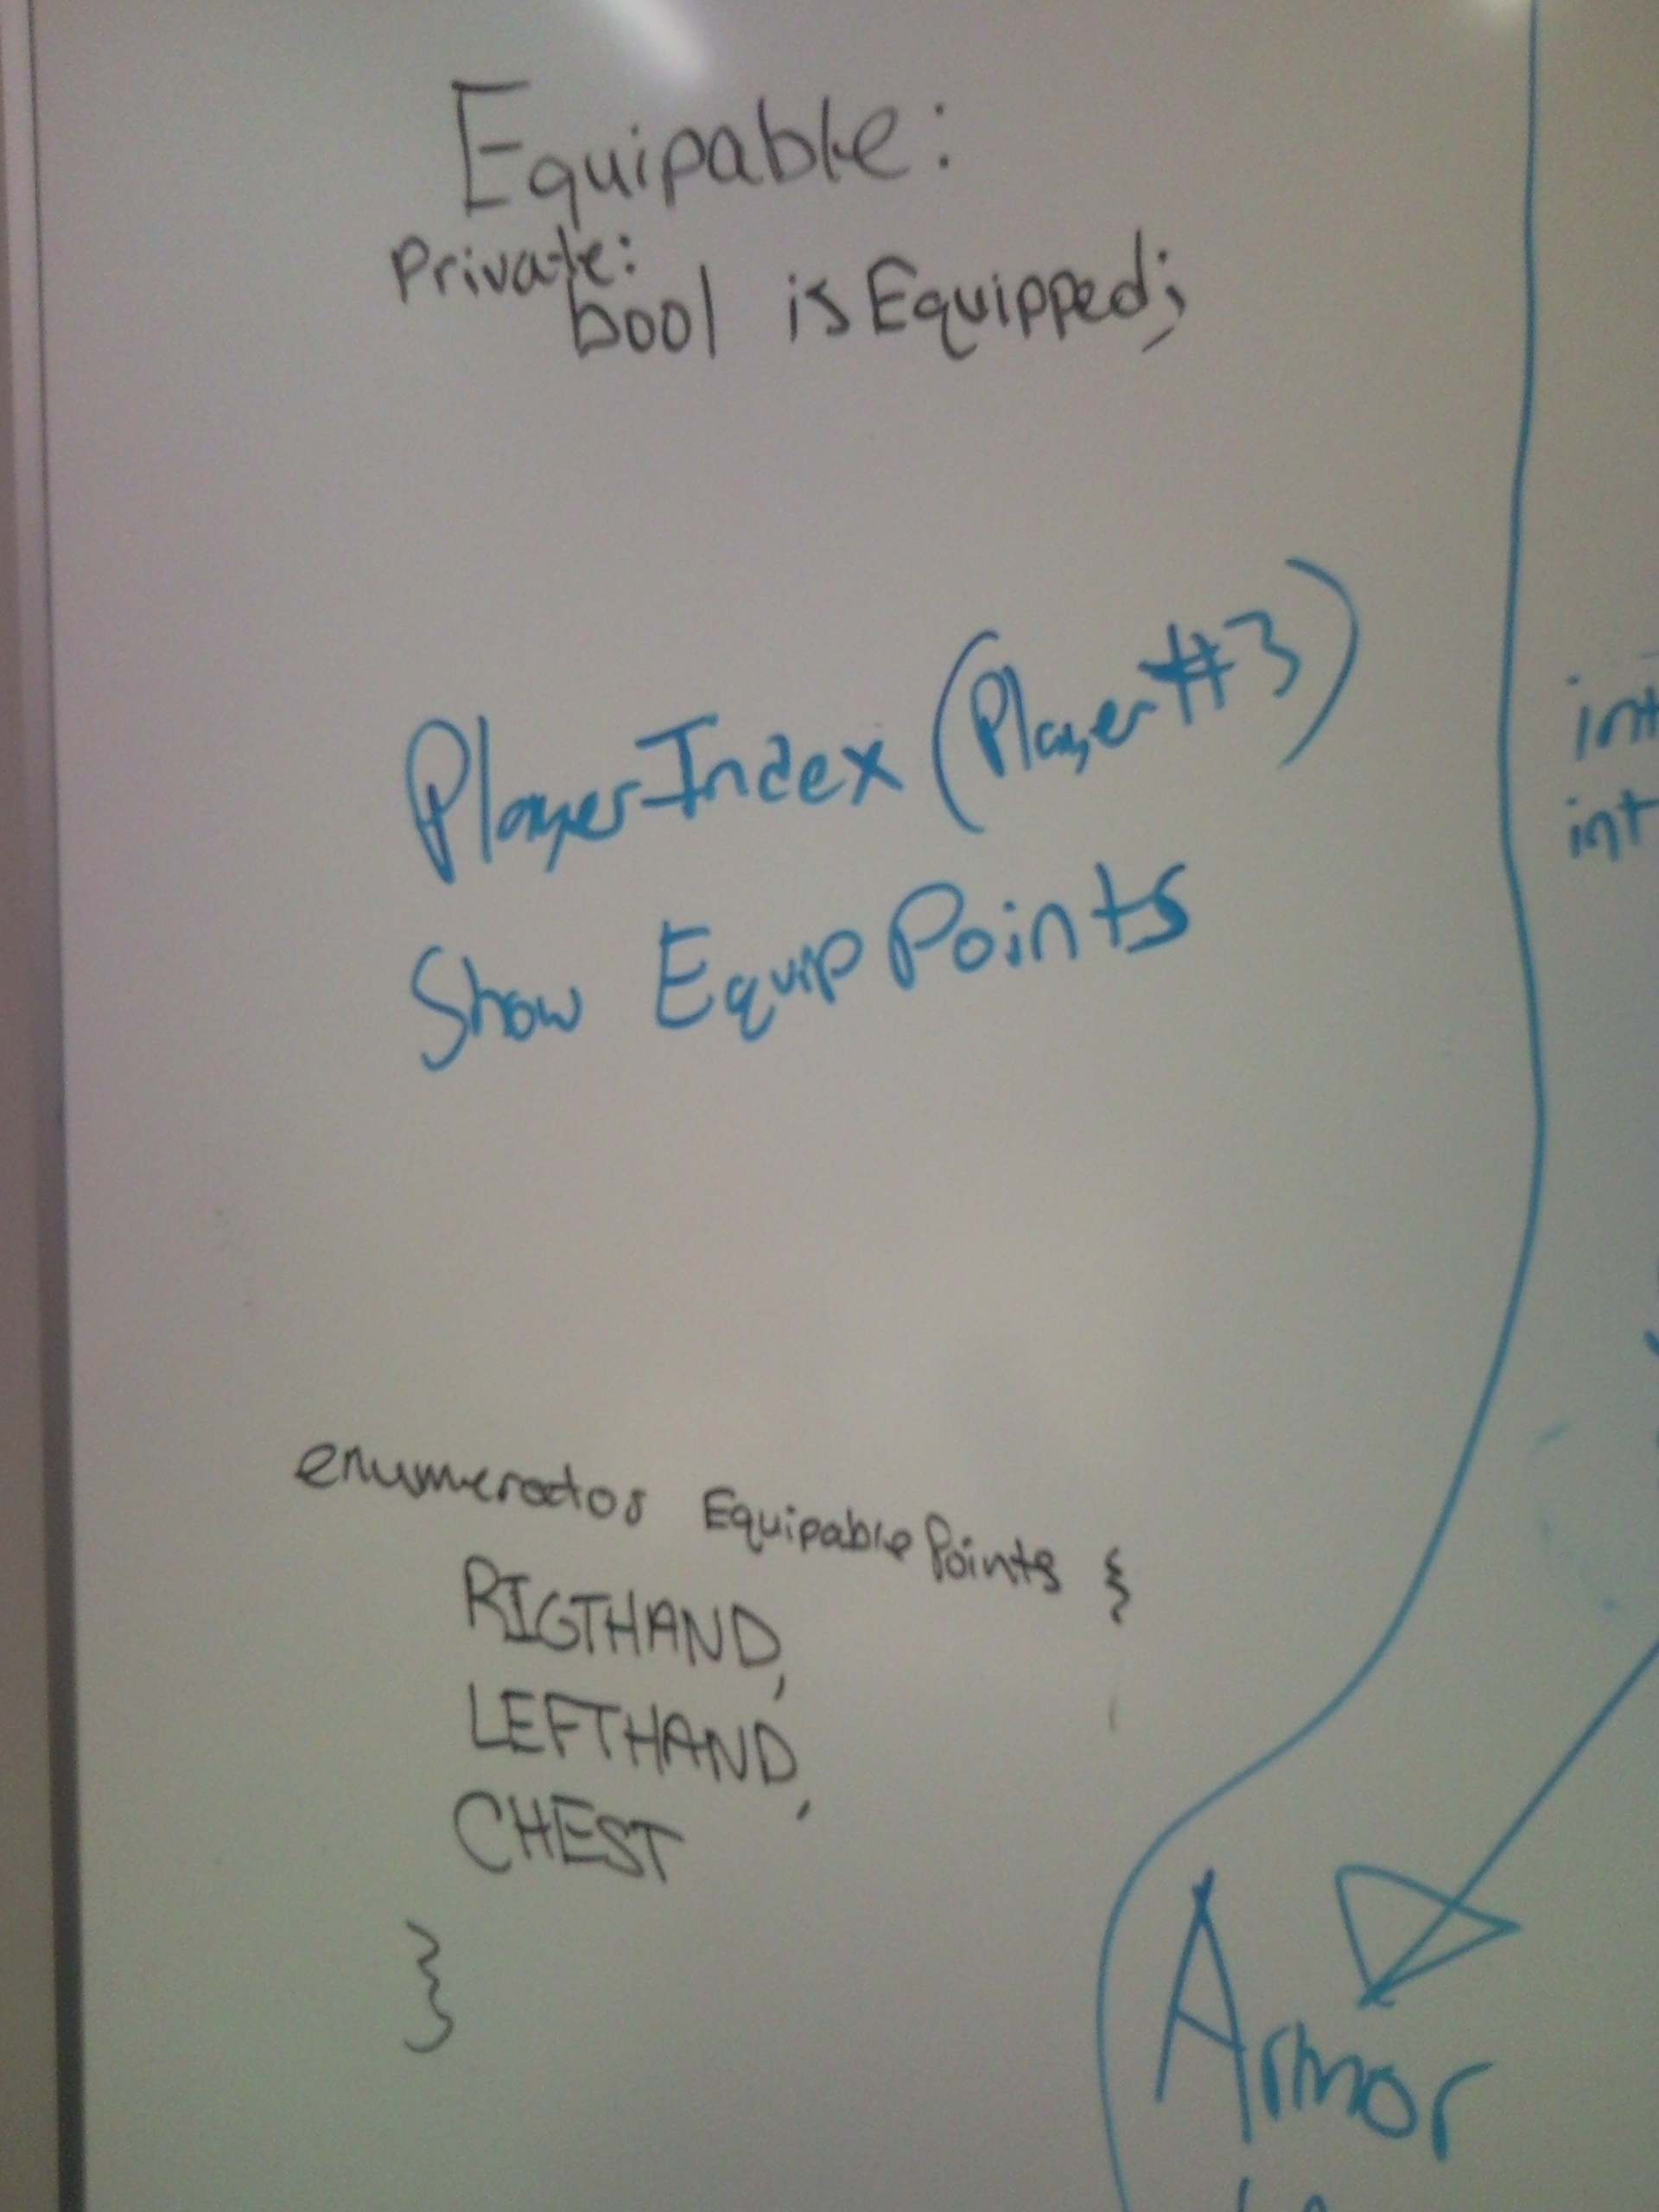 Equipable:
Private:
bool isEquipped;
PlayerIndex (Player #3)
Show EquipPoints
int
int
enumerator EquipablePoints {
RIGTHAND,
LEFTHAND,
CHEST
}
Armor